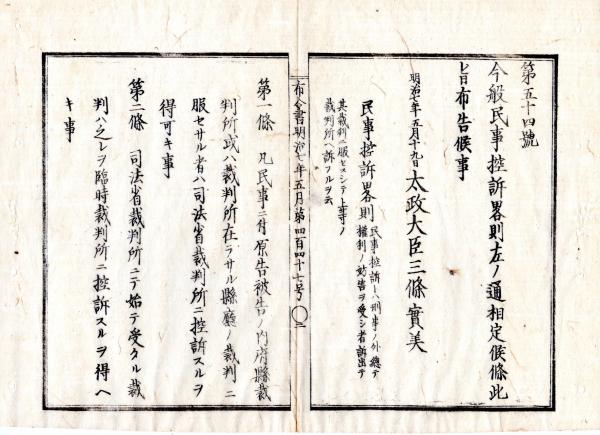 第五十四號
今般民事控訴畧則左ノ通相定候條此
旨布告候事
明治七年五月十九日 太政大臣三條實美
民事控訴畧則
民事控訴トハ刑事ノ外總テ
權利ノ妨害ヲ受シ者訴出テ
其裁判ニ服セスシテ上等ノ
裁判所ヘ訴フルヲ云
布令書明治七年五月第四百四十七号 〇二
第一條 凡民事ニ付原告被告ノ内府縣裁
判所或ハ裁判所在ラサル縣廳ノ裁判ニ
服セサル者ハ司法省裁判所ニ控訴スルヲ
得可キ事
第二條 司法省裁判所ニテ始テ受タル裁
判ハ之レヲ臨時裁判所ニ控訴スルヲ得ヘ
キ事